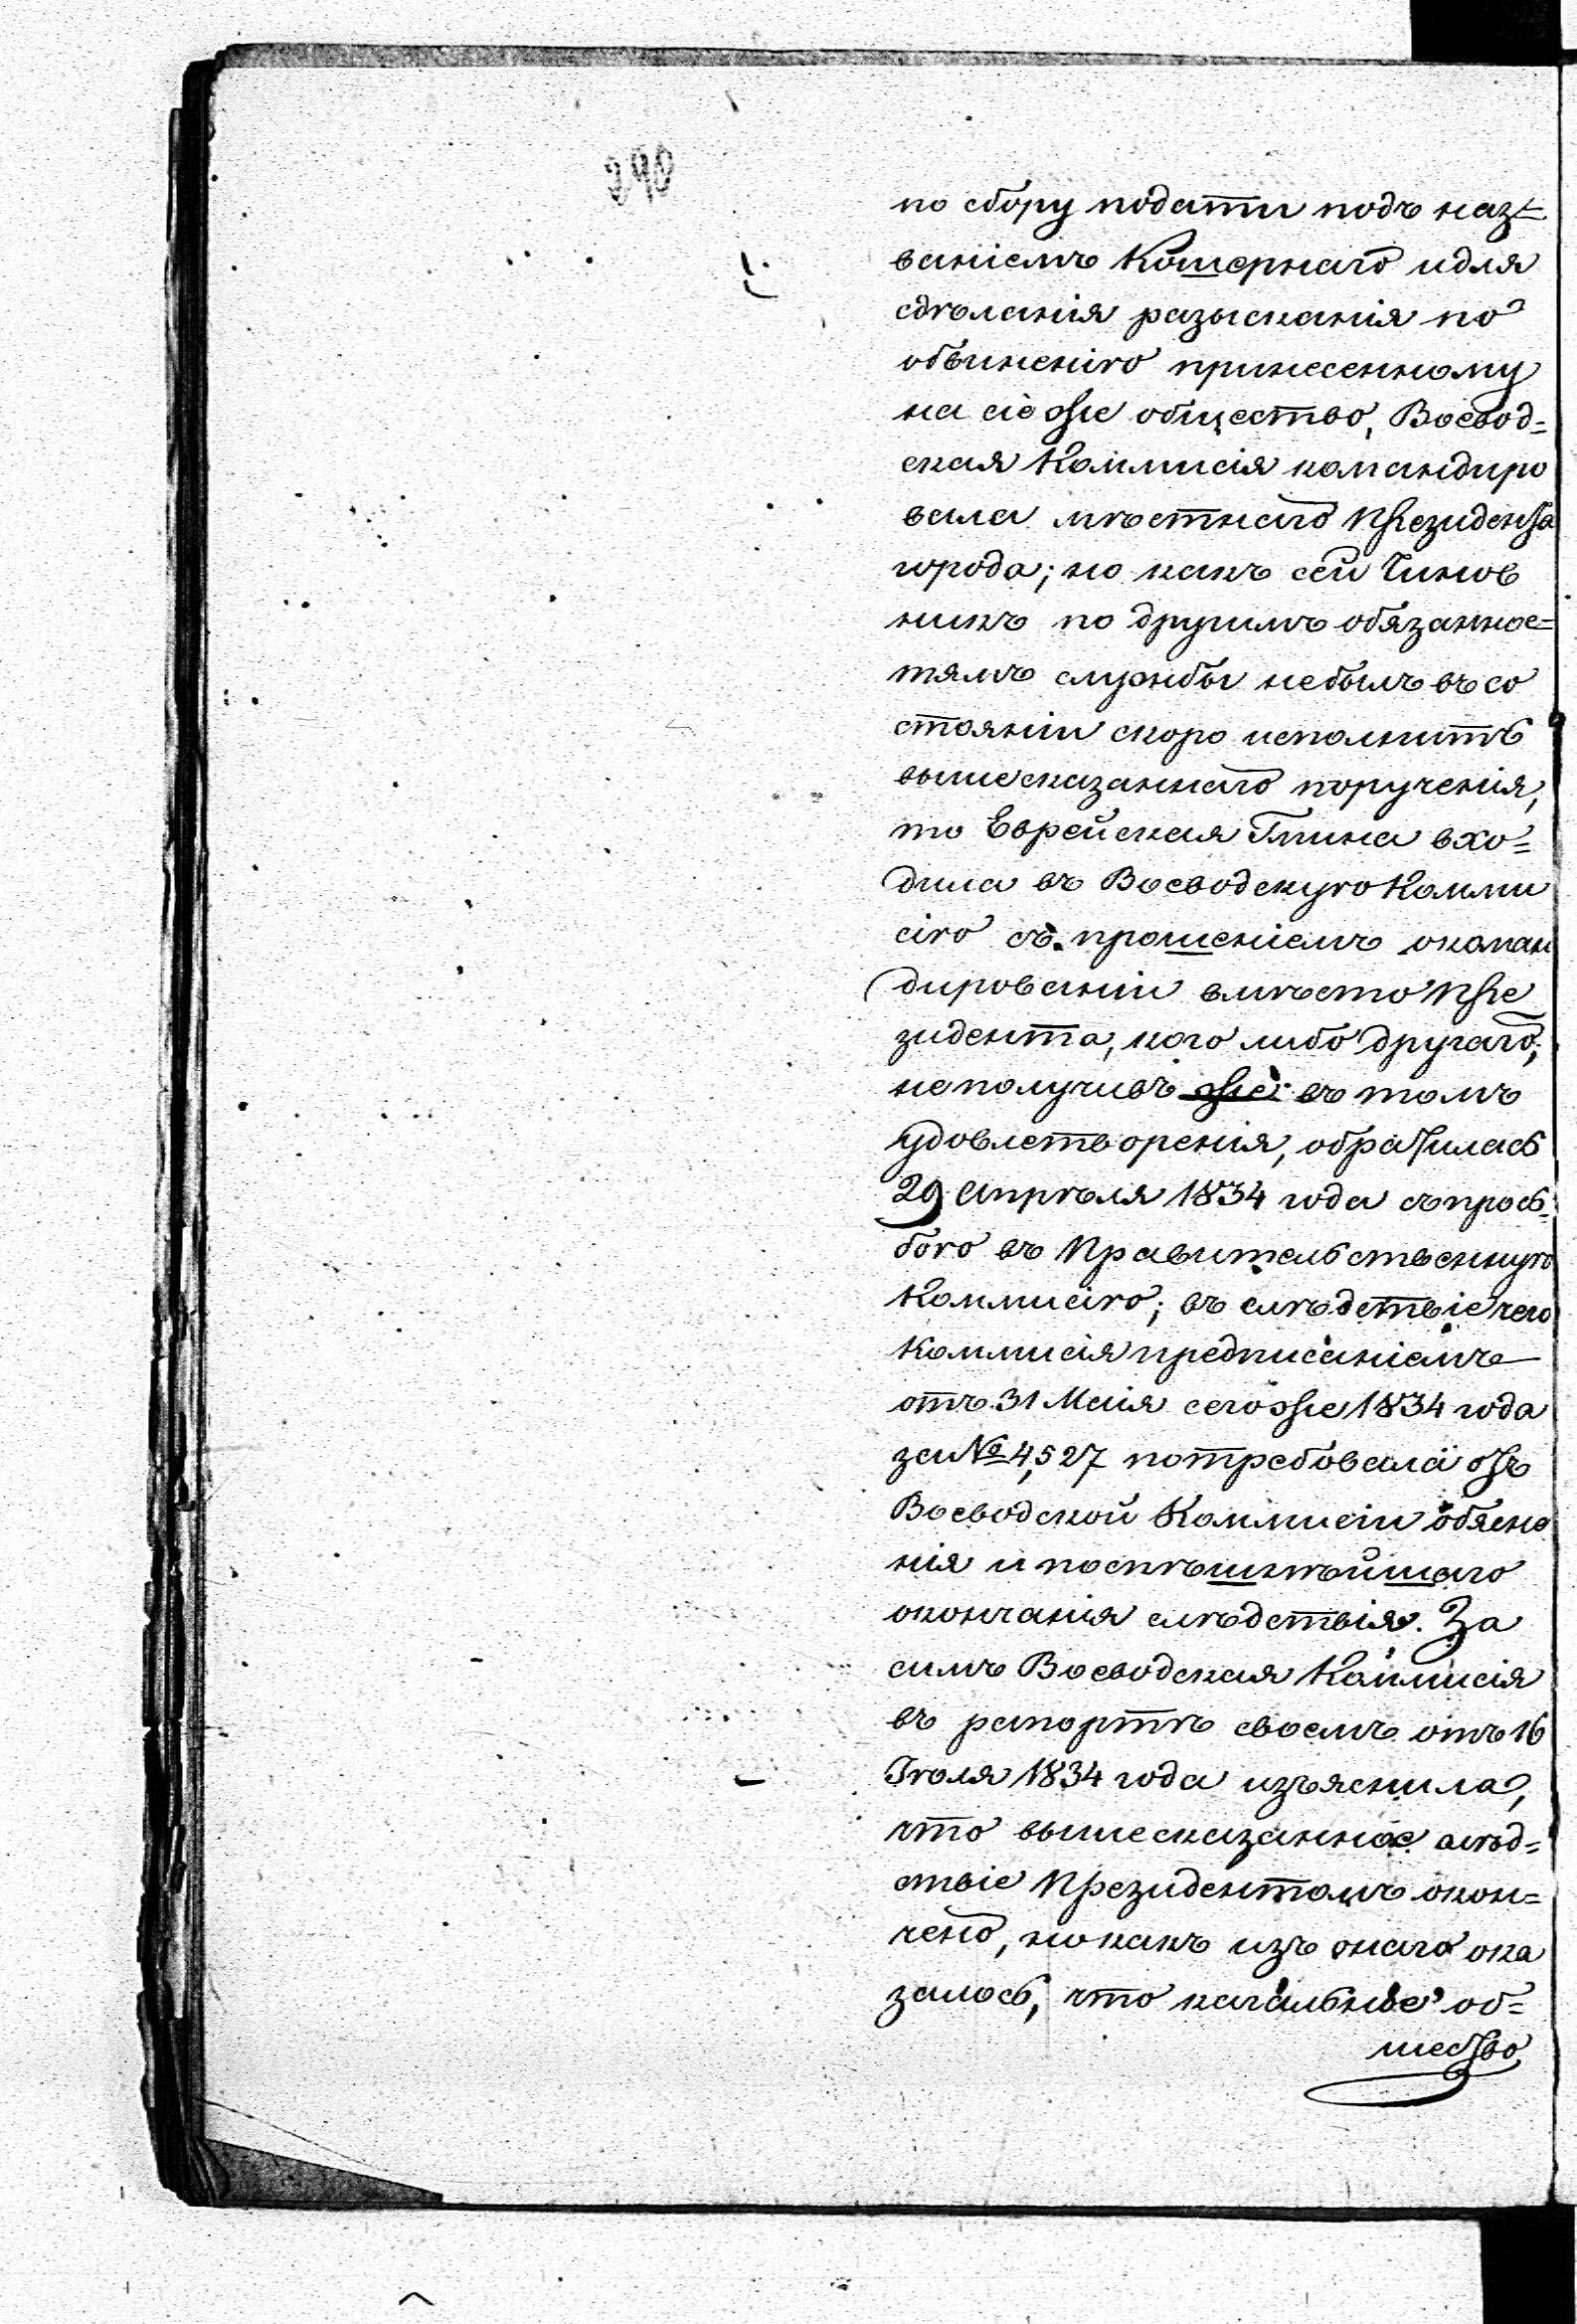 290
по сбору подати подъ наз=
ваніемъ Кошернаго и для
сдѣланія разысканія по
обвиненію принесенному
на сіе же общество, Воевод=
ская Коммисія командиро
вала мѣстнаго Президента
города; но какъ сей Чинов
никъ по другимъ обязаннос=
тямъ службы не былъ въ со
стояніи скоро исполнить
вышесказаннаго порученія,
то Еврейская Гмина вхо=
дила въ Воеводскую Комми
сію съ прошеніемъ о коман
дированіи вмѣсто Пре
зидента, кого либо другаго;
не получивъ же въ томъ
удовлетворенія, обратилась
29 Апрѣля 1834 года съ прось=
бою въ Правительственную
Коммисію; въ слѣдствіе чего
Коммисія предписаніемъ
отъ 31 Маія сего же 1834 года
за № 4,527 потребовала отъ
Воеводской Коммисіи обясне
нія и поспѣшнѣйшаго
окончанія слѣдствія. За
симъ Воеводская Коммисія
въ рапортѣ своемъ отъ 16
Іюля 1834 года изъяснила,
что вышесказанное слѣд=
ствіе Президентомъ окон=
чено, но какъ изъ онаго ока
залось, что кагальное об=
щество